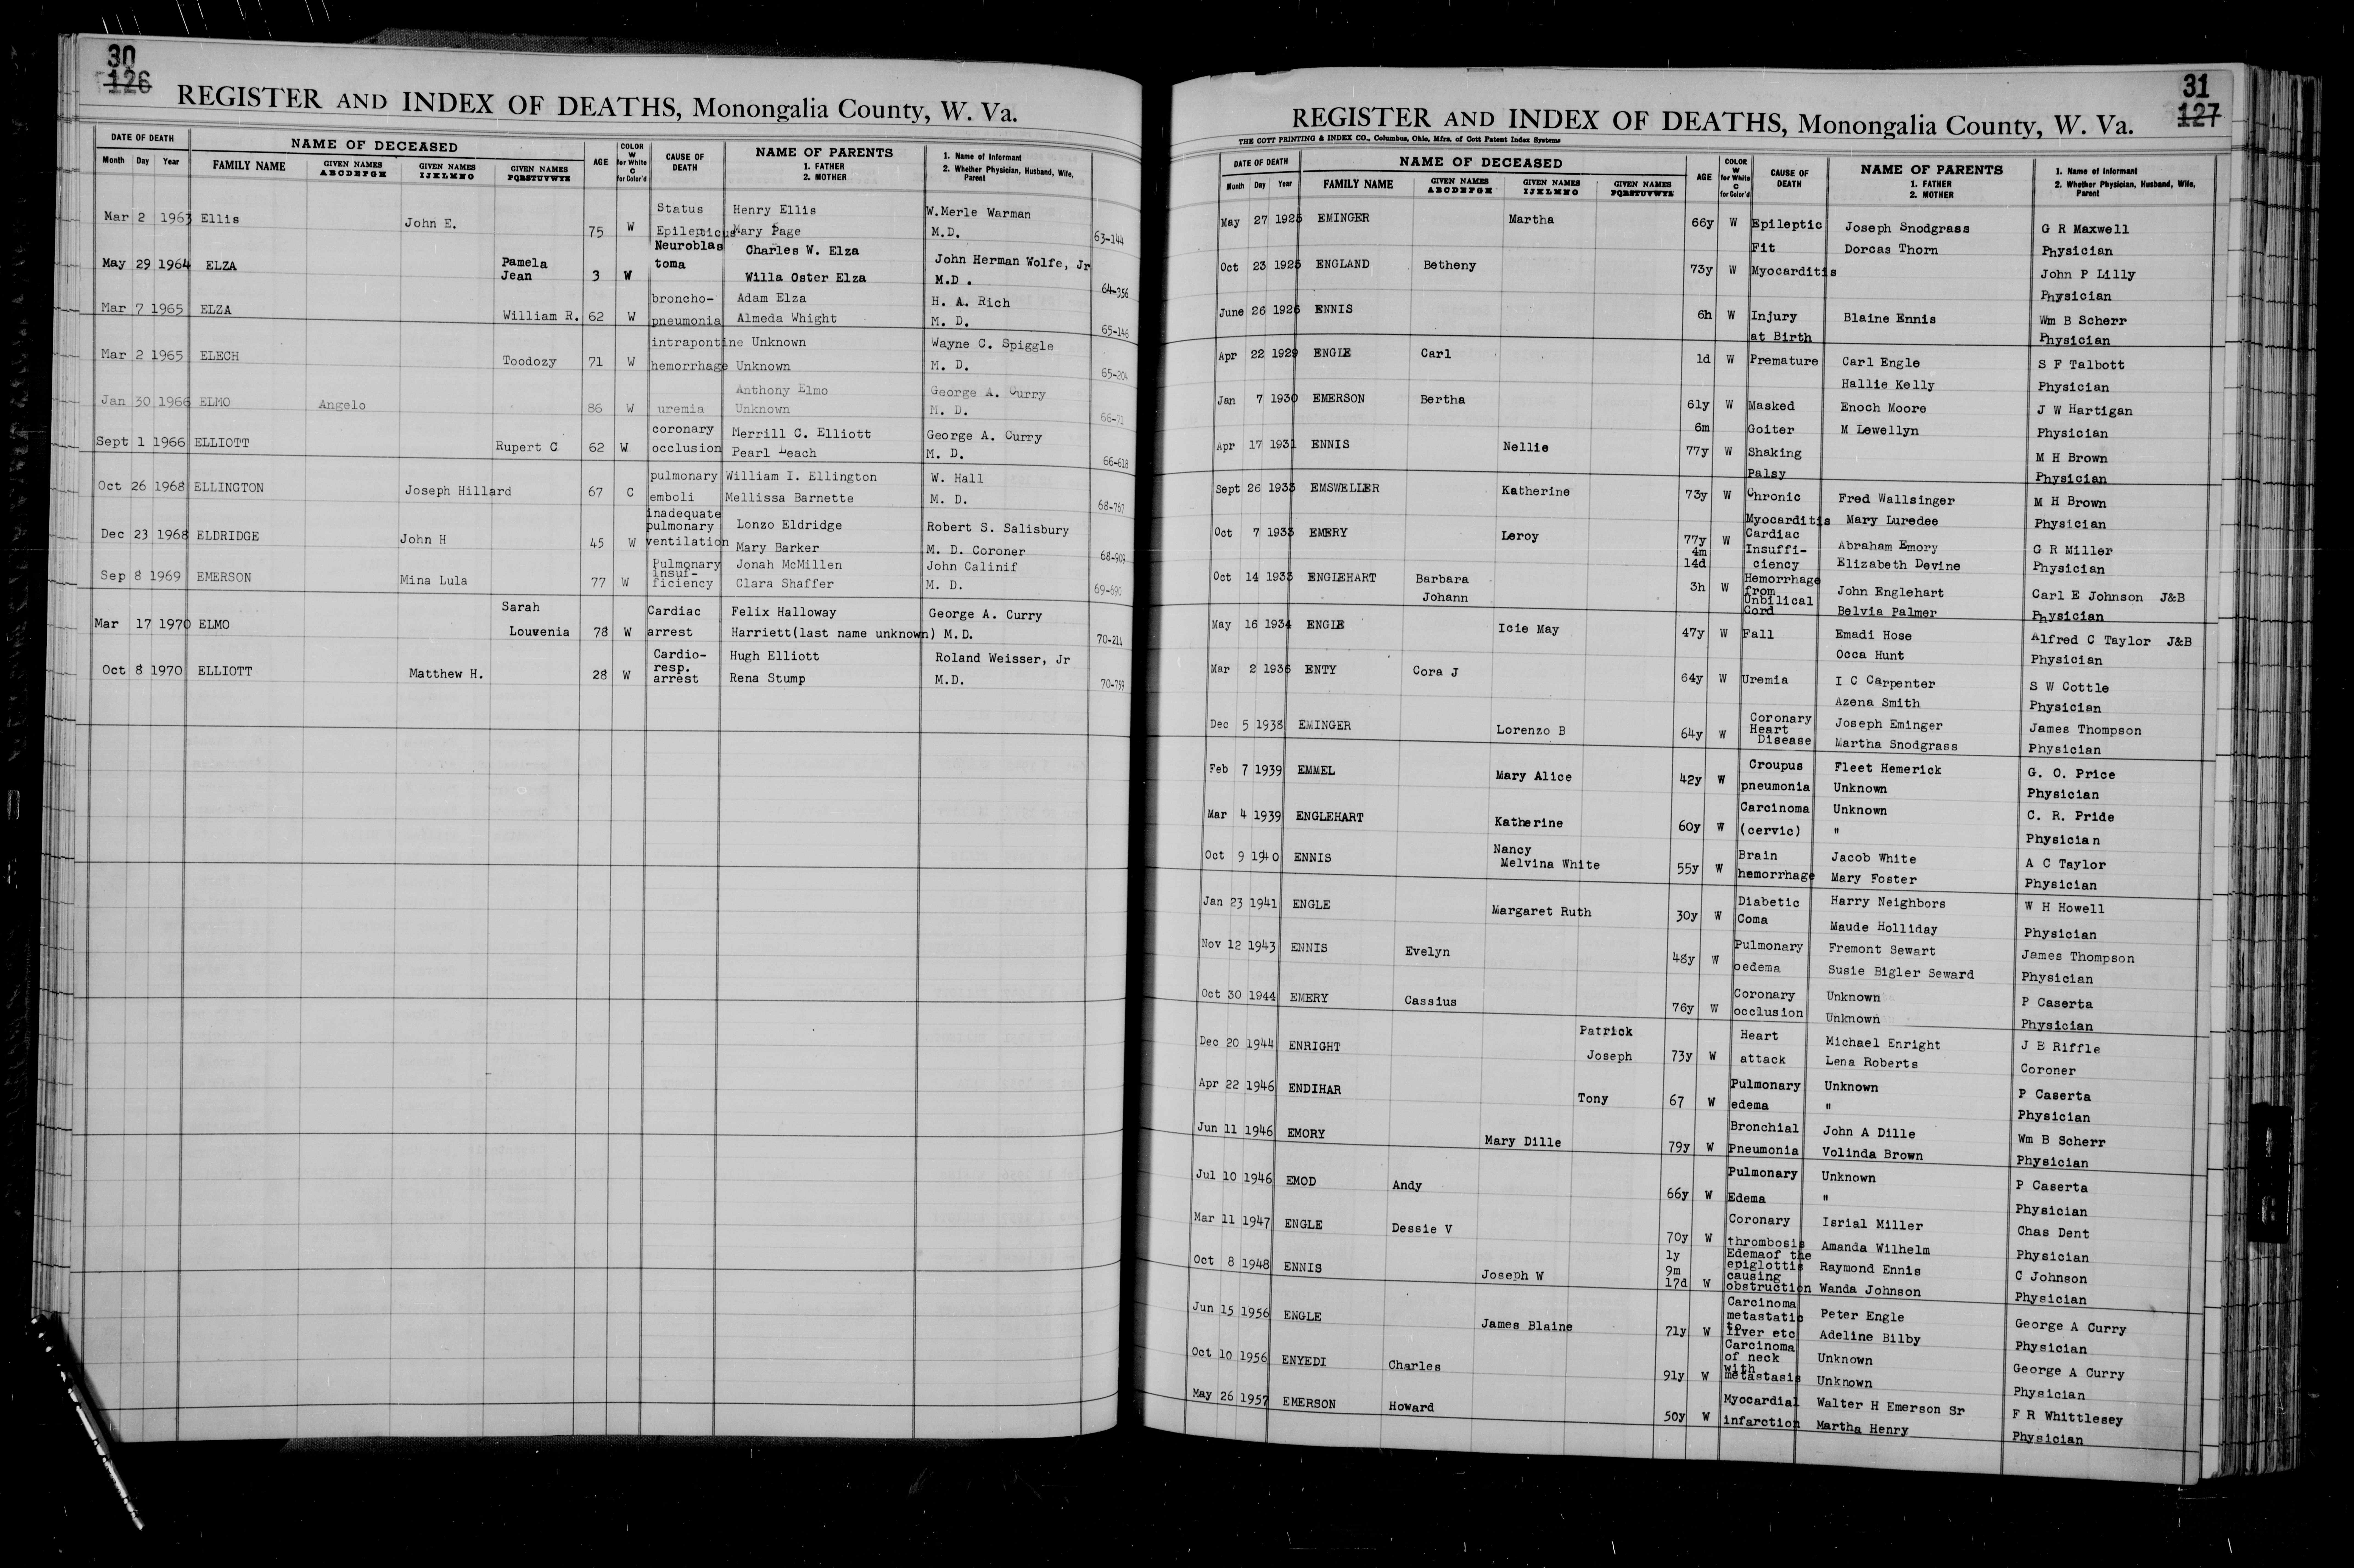 30
126
REGISTER AND INDEX OF DEATHS, Monongalia County, W. Va.
DATE OF DEATH NAME OF DECEASED AGE COLOR W for White C for Color'd CAUSE OF DEATH NAME OF PARENTS 1. FATHER 2. MOTHER 1. Name of Informant 2. Whether Physician, Husband, Wife, Parent
Month Day Year FAMILY NAME GIVEN NAMES ABCDEFGH GIVEN NAMES IJKLMNO GIVEN NAMES PQRSTUVWYZ
Mar 2 1963 Ellis John E. 75 W Status Henry Ellis W.Merle Warman
Epilepticus Mary Page M.D. 63-144
May 29 1964 ELZA Pamela Jean 3 W Neuroblas Charles W. Elza John Herman Wolfe, Jr
toma Willa Oster Elza M.D. 64-356
Mar 7 1965 ELZA William R. 62 W broncho- Adam Elza H. A. Rich
pneumonia Almeda Whight M. D. 65-146
Mar 2 1965 ELECH Toodozy 71 W intrapontine Unknown Wayne C. Spiggle
hemorrhage Unknown M. D. 65-204
Jan 30 1966 ELMO Angelo 86 W uremia Anthony Elmo George A. Curry
Unknown M. D. 66-71
Sept 1 1966 ELLIOTT Rupert C 62 W coronary Merrill C. Elliott George A. Curry
occlusion Pearl Leach M. D. 66-618
Oct 26 1968 ELLINGTON Joseph Hillard 67 C pulmonary William I. Ellington W. Hall
emboli Mellissa Barnette M. D. 68-767
Dec 23 1968 ELDRIDGE John H 45 W inadequate
pulmonary Lonzo Eldridge Robert S. Salisbury
ventilation Mary Barker M. D. Coroner 68-909
Sep 8 1969 EMERSON Mina Lula 77 W Pulmonary Jonah McMillen John Calinif
insuf-
ficiency Clara Shaffer M. D. 69-690
Mar 17 1970 ELMO Sarah Louvenia 78 W Cardiac Felix Halloway George A. Curry
arrest Harriett(last name unknown) M.D. 70-211
Oct 8 1970 ELLIOTT Matthew H. 28 W Cardio- Hugh Elliott Roland Weisser, Jr
resp.
arrest Rena Stump M.D. 70-759
31
127
REGISTER AND INDEX OF DEATHS, Monongalia County, W. Va.
THE COTT PRINTING & INDEX CO., Columbus, Ohio, Mfrs. of Cott Patent Index Systems
DATE OF DEATH NAME OF DECEASED AGE COLOR W for White C for Color'd CAUSE OF DEATH NAME OF PARENTS 1. FATHER 2. MOTHER 1. Name of Informant 2. Whether Physician, Husband, Wife, Parent
Month Day Year FAMILY NAME GIVEN NAMES ABCDEFGH GIVEN NAMES IJKLMNO GIVEN NAMES PQRSTUVWYZ
May 27 1925 EMINGER Martha 66y W Epileptic Joseph Snodgrass G R Maxwell
Fit Dorcas Thorn Physician
Oct 23 1925 ENGLAND Betheny 73y W Myocarditis John P Lilly
Physician
June 26 1926 ENNIS 6h W Injury Blaine Ennis Wm B Scherr
at Birth Physician
Apr 22 1929 ENGLE Carl 1d W Premature Carl Engle S F Talbott
Hallie Kelly Physician
Jan 7 1930 EMERSON Bertha 61y W Masked Enoch Moore J W Hartigan
6m Goiter M Lewellyn Physician
Apr 17 1931 ENNIS Nellie 77y W Shaking M H Brown
Palsy Physician
Sept 26 1933 EMSWELLER Katherine 73y W Chronic Fred Wallsinger M H Brown
Myocarditis Mary Luredee Physician
Oct 7 1933 EMERY Leroy 77y 4m 14d W Cardiac
Insuffi- Abraham Emory G R Miller
ciency Elizabeth Devine Physician
Oct 14 1933 ENGLEHART Barbara Johann 3h W Hemorrhage
from John Englehart Carl E Johnson J&B
Unbilical
Cord Belvia Palmer Physician
May 16 1934 ENGLE Icie May 47y W Fall Emadi Hose Alfred C Taylor J&B
Occa Hunt Physician
Mar 2 1936 ENTY Cora J 64y W Uremia I C Carpenter S W Cottle
Azena Smith Physician
Dec 5 1938 EMINGER Lorenzo B 64y W Coronary Joseph Eminger James Thompson
Heart
Disease Martha Snodgrass Physician
Feb 7 1939 EMMEL Mary Alice 42y W Croupus Fleet Hemerick G. O. Price
pneumonia Unknown Physician
Mar 4 1939 ENGLEHART Katherine 60y W Carcinoma Unknown C. R. Pride
(cervic) " Physician
Oct 9 1940 ENNIS Nancy Melvina White 55y W Brain Jacob White A C Taylor
hemorrhage Mary Foster Physician
Jan 23 1941 ENGLE Margaret Ruth 30y W Diabetic Harry Neighbors W H Howell
Coma Maude Holliday Physician
Nov 12 1943 ENNIS Evelyn 48y W Pulmonary Fremont Sewart James Thompson
oedema Susie Bigler Seward Physician
Oct 30 1944 EMERY Cassius 76y W Coronary Unknown P Caserta
occlusion Unknown Physician
Dec 20 1944 ENRIGHT Patrick Joseph 73y W Heart Michael Enright J B Riffle
attack Lena Roberts Coroner
Apr 22 1946 ENDIHAR Tony 67 W Pulmonary Unknown P Caserta
edema " Physician
Jun 11 1946 EMORY Mary Dille 79y W Bronchial John A Dille Wm B Scherr
Pneumonia Volinda Brown Physician
Jul 10 1946 EMOD Andy 66y W Pulmonary Unknown P Caserta
Edema " Physician
Mar 11 1947 ENGLE Dessie V 70y W Coronary Isrial Miller Chas Dent
thrombosis Amanda Wilhelm Physician
Oct 8 1948 ENNIS Joseph W 1y 9m 17d W Edemaof the
epiglottis Raymond Ennis C Johnson
causing
obstruction Wanda Johnson Physician
Jun 15 1956 ENGLE James Blaine 71y W Carcinoma
metastatic Peter Engle George A Curry
to
liver etc Adeline Bilby Physician
Oct 10 1956 ENYEDI Charles 91y W Carcinoma
of neck Unknown George A Curry
with
metastasis Unknown Physician
May 26 1957 EMERSON Howard 50y W Myocardial Walter H Emerson Sr F R Whittlesey
infarction Martha Henry Physician